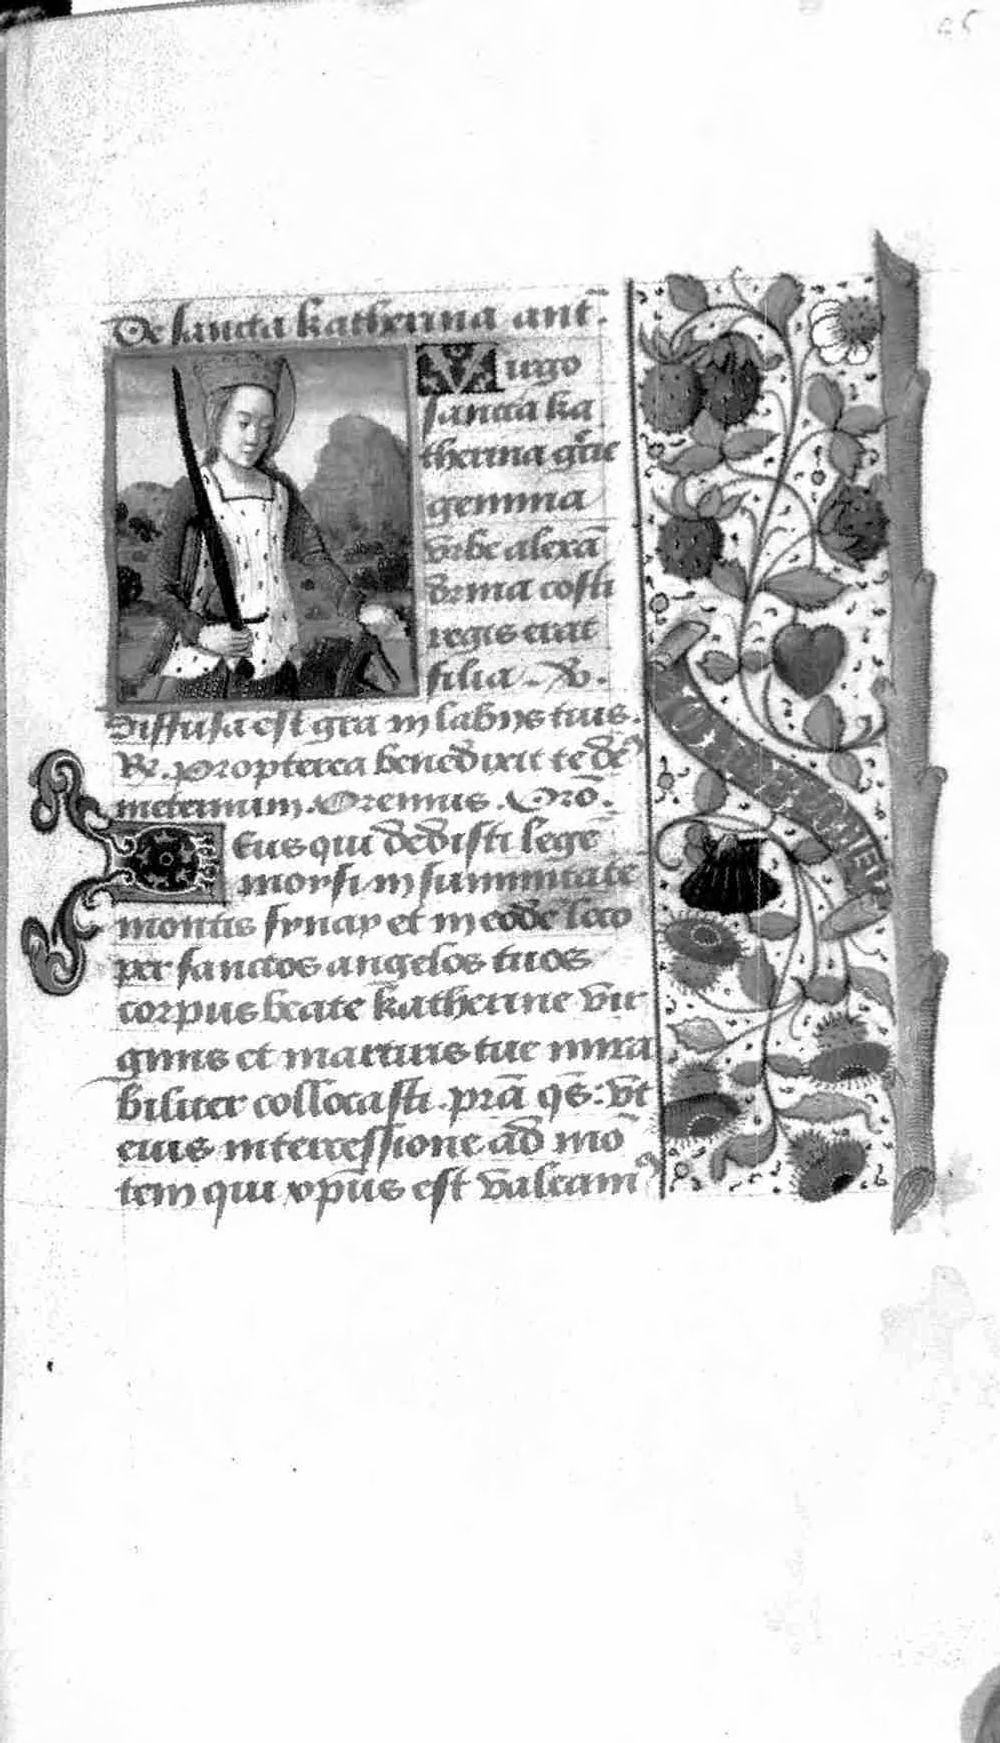 De sancta katherina ant̄.
Virgo
sancta ka
therina grĩe
gemma
vrbe alexã
drina costi
regis erat
filia. V̄.
Diffusa est gr̄a in labijs tuis.
R̄. Propterea benedixit te de⁹
in eternum. Oremus. Oro᷃.
Deus qui dedisti legē
moysi in summitate
montis synay et in eodē loco
per sanctos angelos tuos
corpus beate katherine vir
ginis et martiris tue mira
biliter collocasti. pr̄a q̄s: vt
eius intercessione ad mō
tem qui xp̄us est valeam⁹